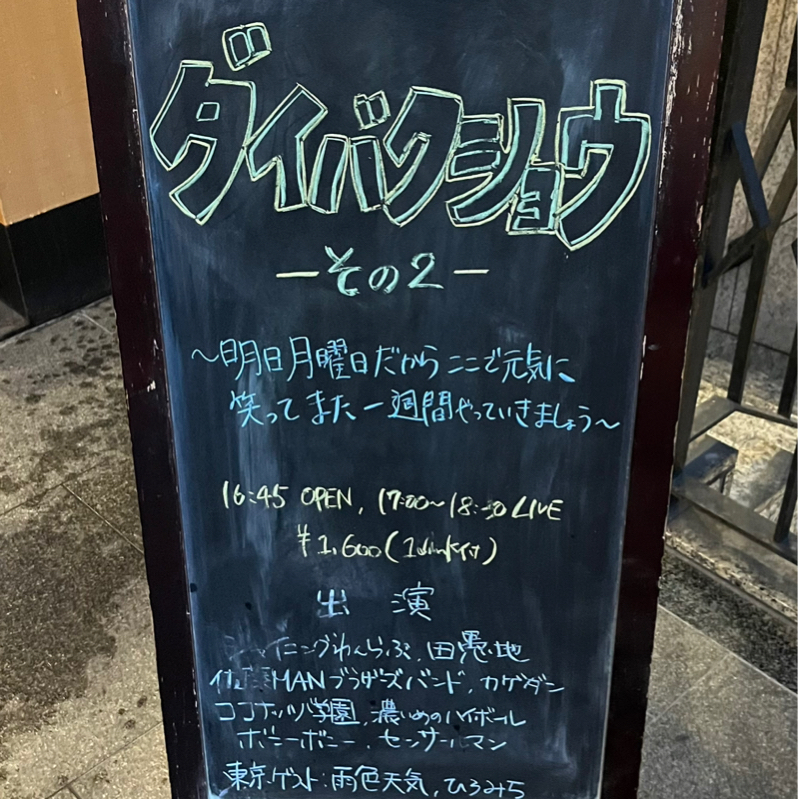 ダイバクショウ
ーその2ー
～明日月曜日だからここで元気に
笑ってまた一週間やっていきましょう～
16:45 OPEN, 17:00～18:30 LIVE
¥1,600(1drink付)
出演
シャイニングわんらぶ, 田愚地
佐藤MANブラザーズバンド, カゲダン
ココナッツ学園, 濃いめのハイボール
ボニーボニー, センサールマン
東京ゲスト:雨色天気, ひろみち